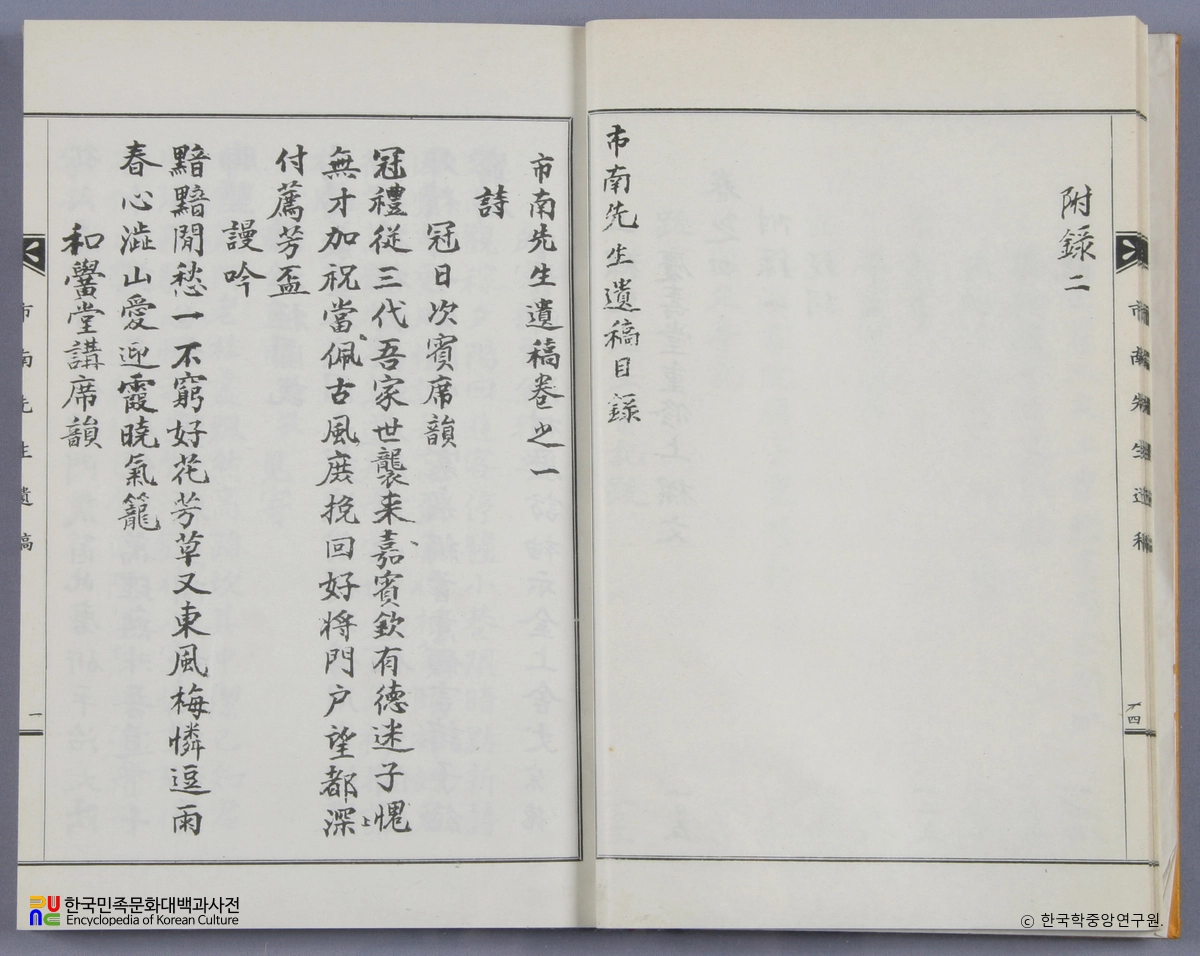 附錄二
市南先生遺稿目錄
市南先生遺稿
十四
市南先生遺稿卷之一
詩
冠日次賓席韻
冠禮從三代吾家世襲来嘉賓欽有德迷子愧
無才加祝當佩古風庶挽回好將門戶望都深
付薦芳盃
謾吟
黯黯閒愁一不窮好花芳草又東風梅憐逗雨
春心澁山愛迎霞曉氣籠
和黌堂講席韻
市南先生遺稿
一
한국민족문화대백과사전
Encyclopedia of Korean Culture
ⓒ 한국학중앙연구원.